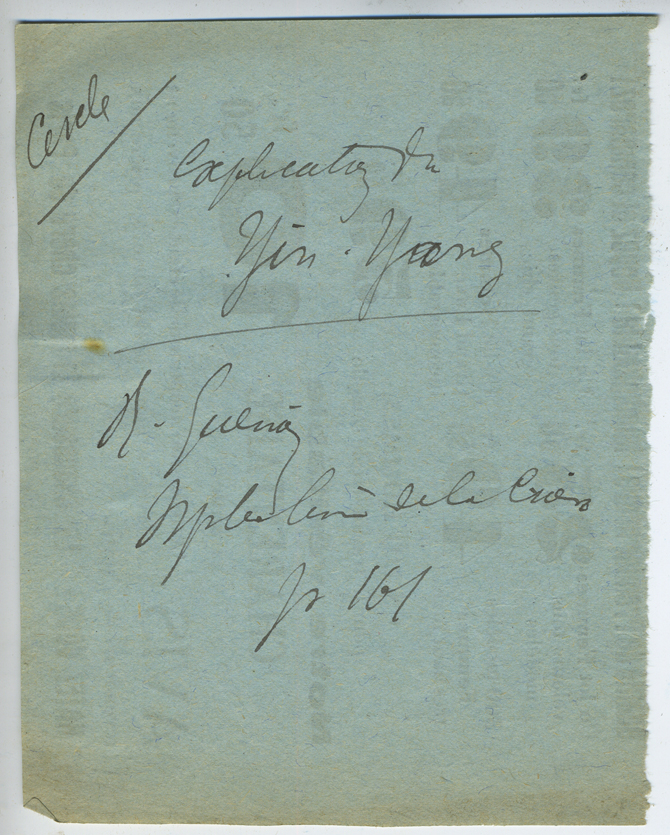 Cercle
Explication du
Yin-Yang
R. Guénon
Symbolisme de la Croix
p 161